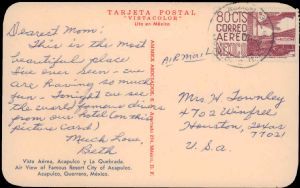 TARJETA POSTAL
"VISTACOLOR"
Lito en México
Dearest Mom:
This is the most
beautiful place
I've ever seen - we
are having so much
fun. Tonight we see
the world famous divers
from our hotel (on this
picture card)
Much Love,
Beth
Vista Aérea, Acapulco y La Quebrada.
Air View of Famous Resort City of Acapulco.
Acapulco, Guerrero, México.
80 CTS
CORREO
AEREO
MEXICO
AIR MAIL
Mrs. H Townley
4702 Winfree
Houston, Texas
77021
U.S.A.